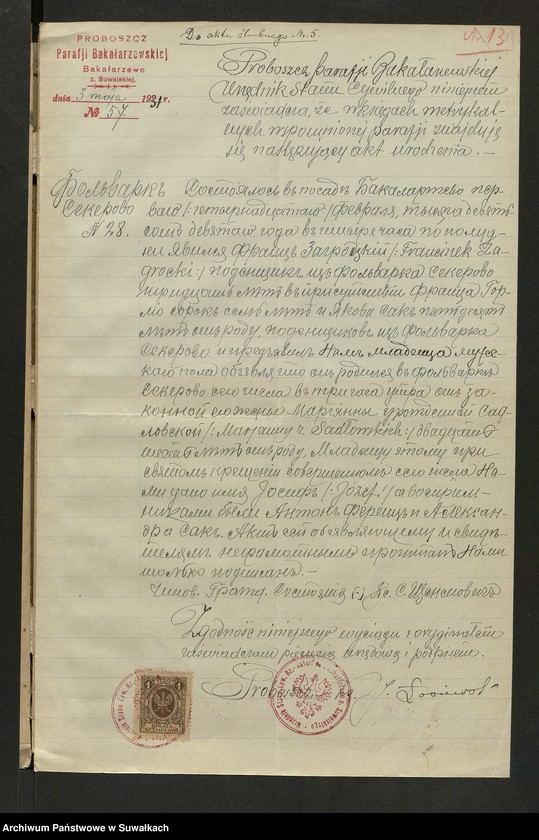 Do aktu ślubnego Nr. 5.
Nr 13
PROBOSZCZ
Parafji Bakałarzewskiej
Bakałarzewo
z. Suwalskiej.
dnia 3 maja 1931 r.
№ 57
Proboszcz parafji Bakałarzewskiej
Urzędnik Stanu Cywilnego niniejszem
zaświadcza, że w księgach metrykal-
nych wspomnionej parafji znajduje
się następujący akt urodzenia. —
Фольваркъ
Секерово
№ 28.
Состоялось въ посадѣ Бакаларжево пер-
ваго /: четырнадцатаго :/ Февраля, тысяча девять
сотъ девятаго года въ четыре часа по полуд-
ни. Явился Францъ Загродцкій /: Franciszek Za-
grocki :/ поденщикъ изъ фольварка Секерово
тридцать лѣтъ въ присутствіи Франца Гор-
ло сорокъ семь лѣтъ и Якова Сакъ пятьдесятъ
лѣтъ отъ роду, поденщиковъ изъ фольварка
Секерово и предъявилъ Намъ младенца муже-
скаго пола объявляя что онъ родился въ фольваркѣ
Секерово сего числа въ три часа утра отъ за-
конной его жены Маріанны урожденной Сад-
ловской /: Marjanny z Sadłowskich :/ двадцати
шести лѣтъ отъ роду. Младенцу этому при
святомъ крещеніи совершенномъ сего числа На-
ми дано имя Іосифъ /: Józef :/ а воспріем-
никами были Антонъ Ференцъ и Александ-
ра Сакъ. Актъ сей объявляющему и свидѣ-
телямъ неграмотнымъ прочитанъ Нами
только подписанъ. —
Чинов. Гражд. Состоянія (-) Кс. С. Щенсновичъ
Zgodność niniejszego wyciągu z oryginałem
zaświadczam pieczęcią urzędową i podpisem.
Proboszcz ks.
1
Archiwum Państwowe w Suwałkach